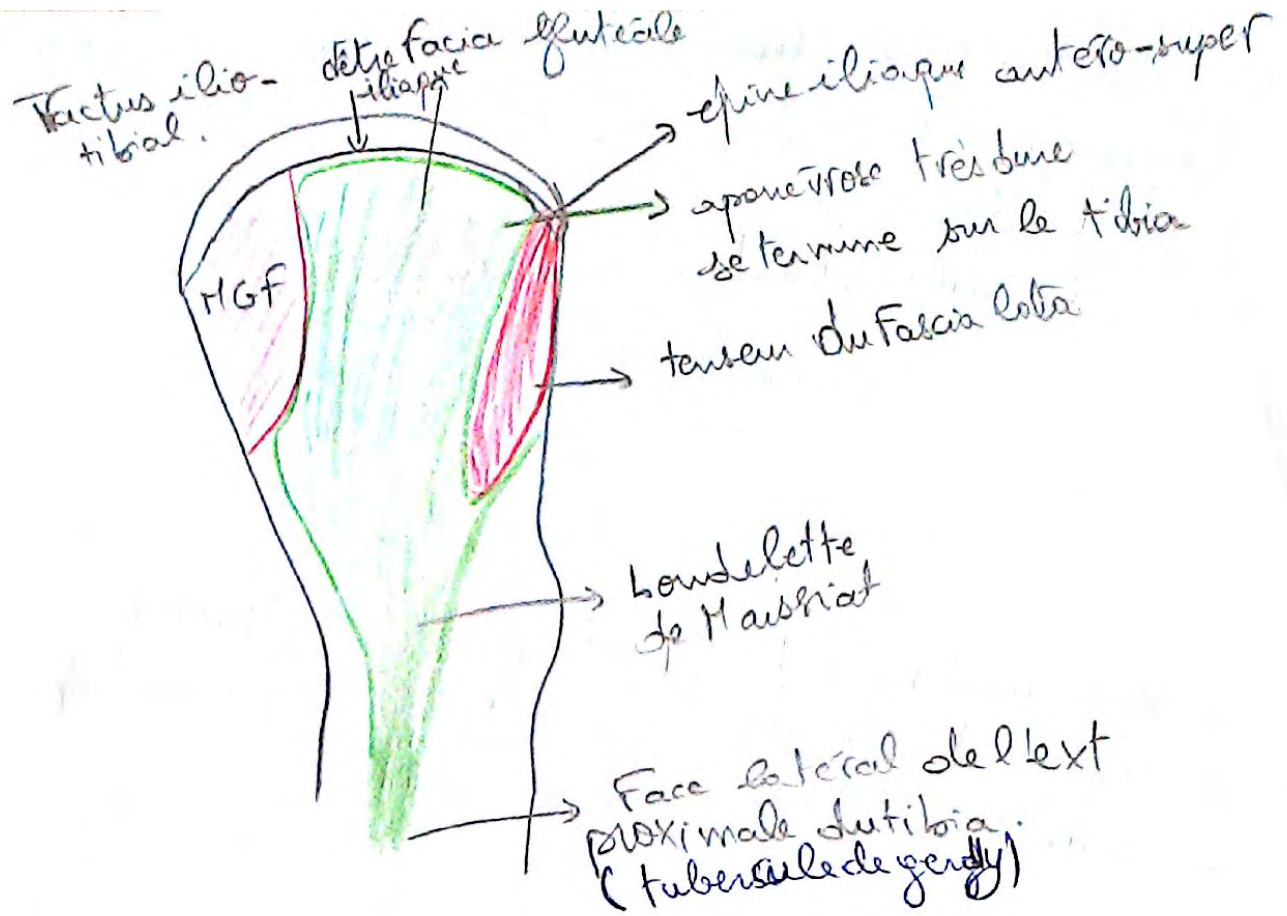 Tractus ilio-
tibial.
crête
iliaque
Facia glutéale
épine iliaque antéro-super
aponévrose très dure
se termine sur le tibia
MGF
tenseur du Fascia lata
bandelette
de Maissiat
Face latéral de l'ext
proximale du tibia.
(tubercule de gerdy)